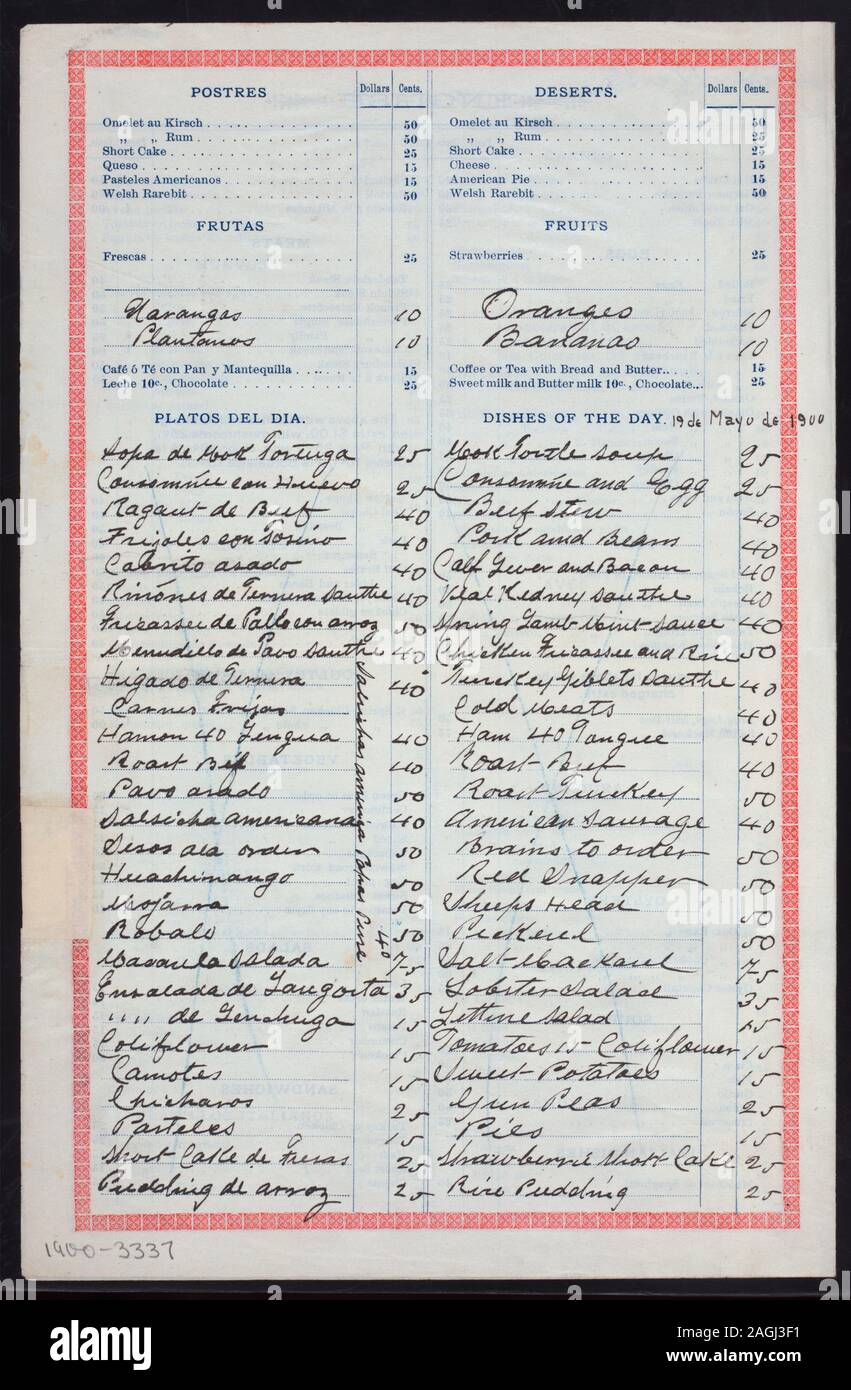 POSTRES Dollars Cents.
Omelet au Kirsch 50
„ „ Rum 50
Short Cake 25
Queso 15
Pasteles Americanos 15
Welsh Rarebit 50
FRUTAS
Frescas 25
Narangas 10
Plantanos 10
Café ó Té con Pan y Mantequilla 15
Leche 10c., Chocolate 25
PLATOS DEL DIA.
Sopa de Mok Tortuga 25
Consommée con Huevo 25
Ragaut de Beef 40
Frijoles con Tosino 40
Cabrito asado 40
Riñónes de Ternera Sauthe 40
Fricassee de Pollo con arroz 50
Menudielo de Pavo Sauthe 40
Higado de Ternera 40
Carnes Frijas
Hamon 40 Lengua 40
Roast Bef 40
Pavo asado 50
Salsicha americana 40
Sesos ala orden 50
Huachinango 50
Mojarra 50
Robalo 50
Macarela Salada 75
Ensalada de Langosta 35
" " de Lenchuga 15
Coliflower 15
Camotes 15
Chicharos 25
Pasteles 15
Short Cake de Fresas 25
Pudding de arroz 25
Salsichas america Papas Pure 40
DESERTS. Dollars Cents.
Omelet au Kirsch 50
„ „ Rum 25
Short Cake 25
Cheese 15
American Pie 15
Welsh Rarebit 50
FRUITS
Strawberries 25
Oranges 10
Bananas 10
Coffee or Tea with Bread and Butter.. 15
Sweet milk and Butter milk 10c., Chocolate... 25
DISHES OF THE DAY. 19 de Mayo de 1900
Mook Tortle Soup 25
Consommée and Egg 25
Beef Stew 40
Pork and Beans 40
Calf Lever and Bacon 40
Veal Kedney Sauthe 40
Spring Lamb Mint Sauce 40
Chicken Fricassee and Rice 50
Turckey Giblets Sauthe 40
Cold Meats 40
Ham 40 Tongue 40
Roast Beef 40
Roast Turckey 50
American Sausage 40
Brains to order 50
Red Snapper 50
Sheeps Head 50
Pickerel 50
Salt Mackarel 75
Lobster Salad 35
Lettuce Salad 15
Tomatoes 15 Coliflower 15
Sweet Potatoes 15
Green Peas 25
Pies 15
Strawberrie Short Cake 25
Rice Pudding 25
1900-3337
alamy
Image ID: 2AGJ3F1
www.alamy.com